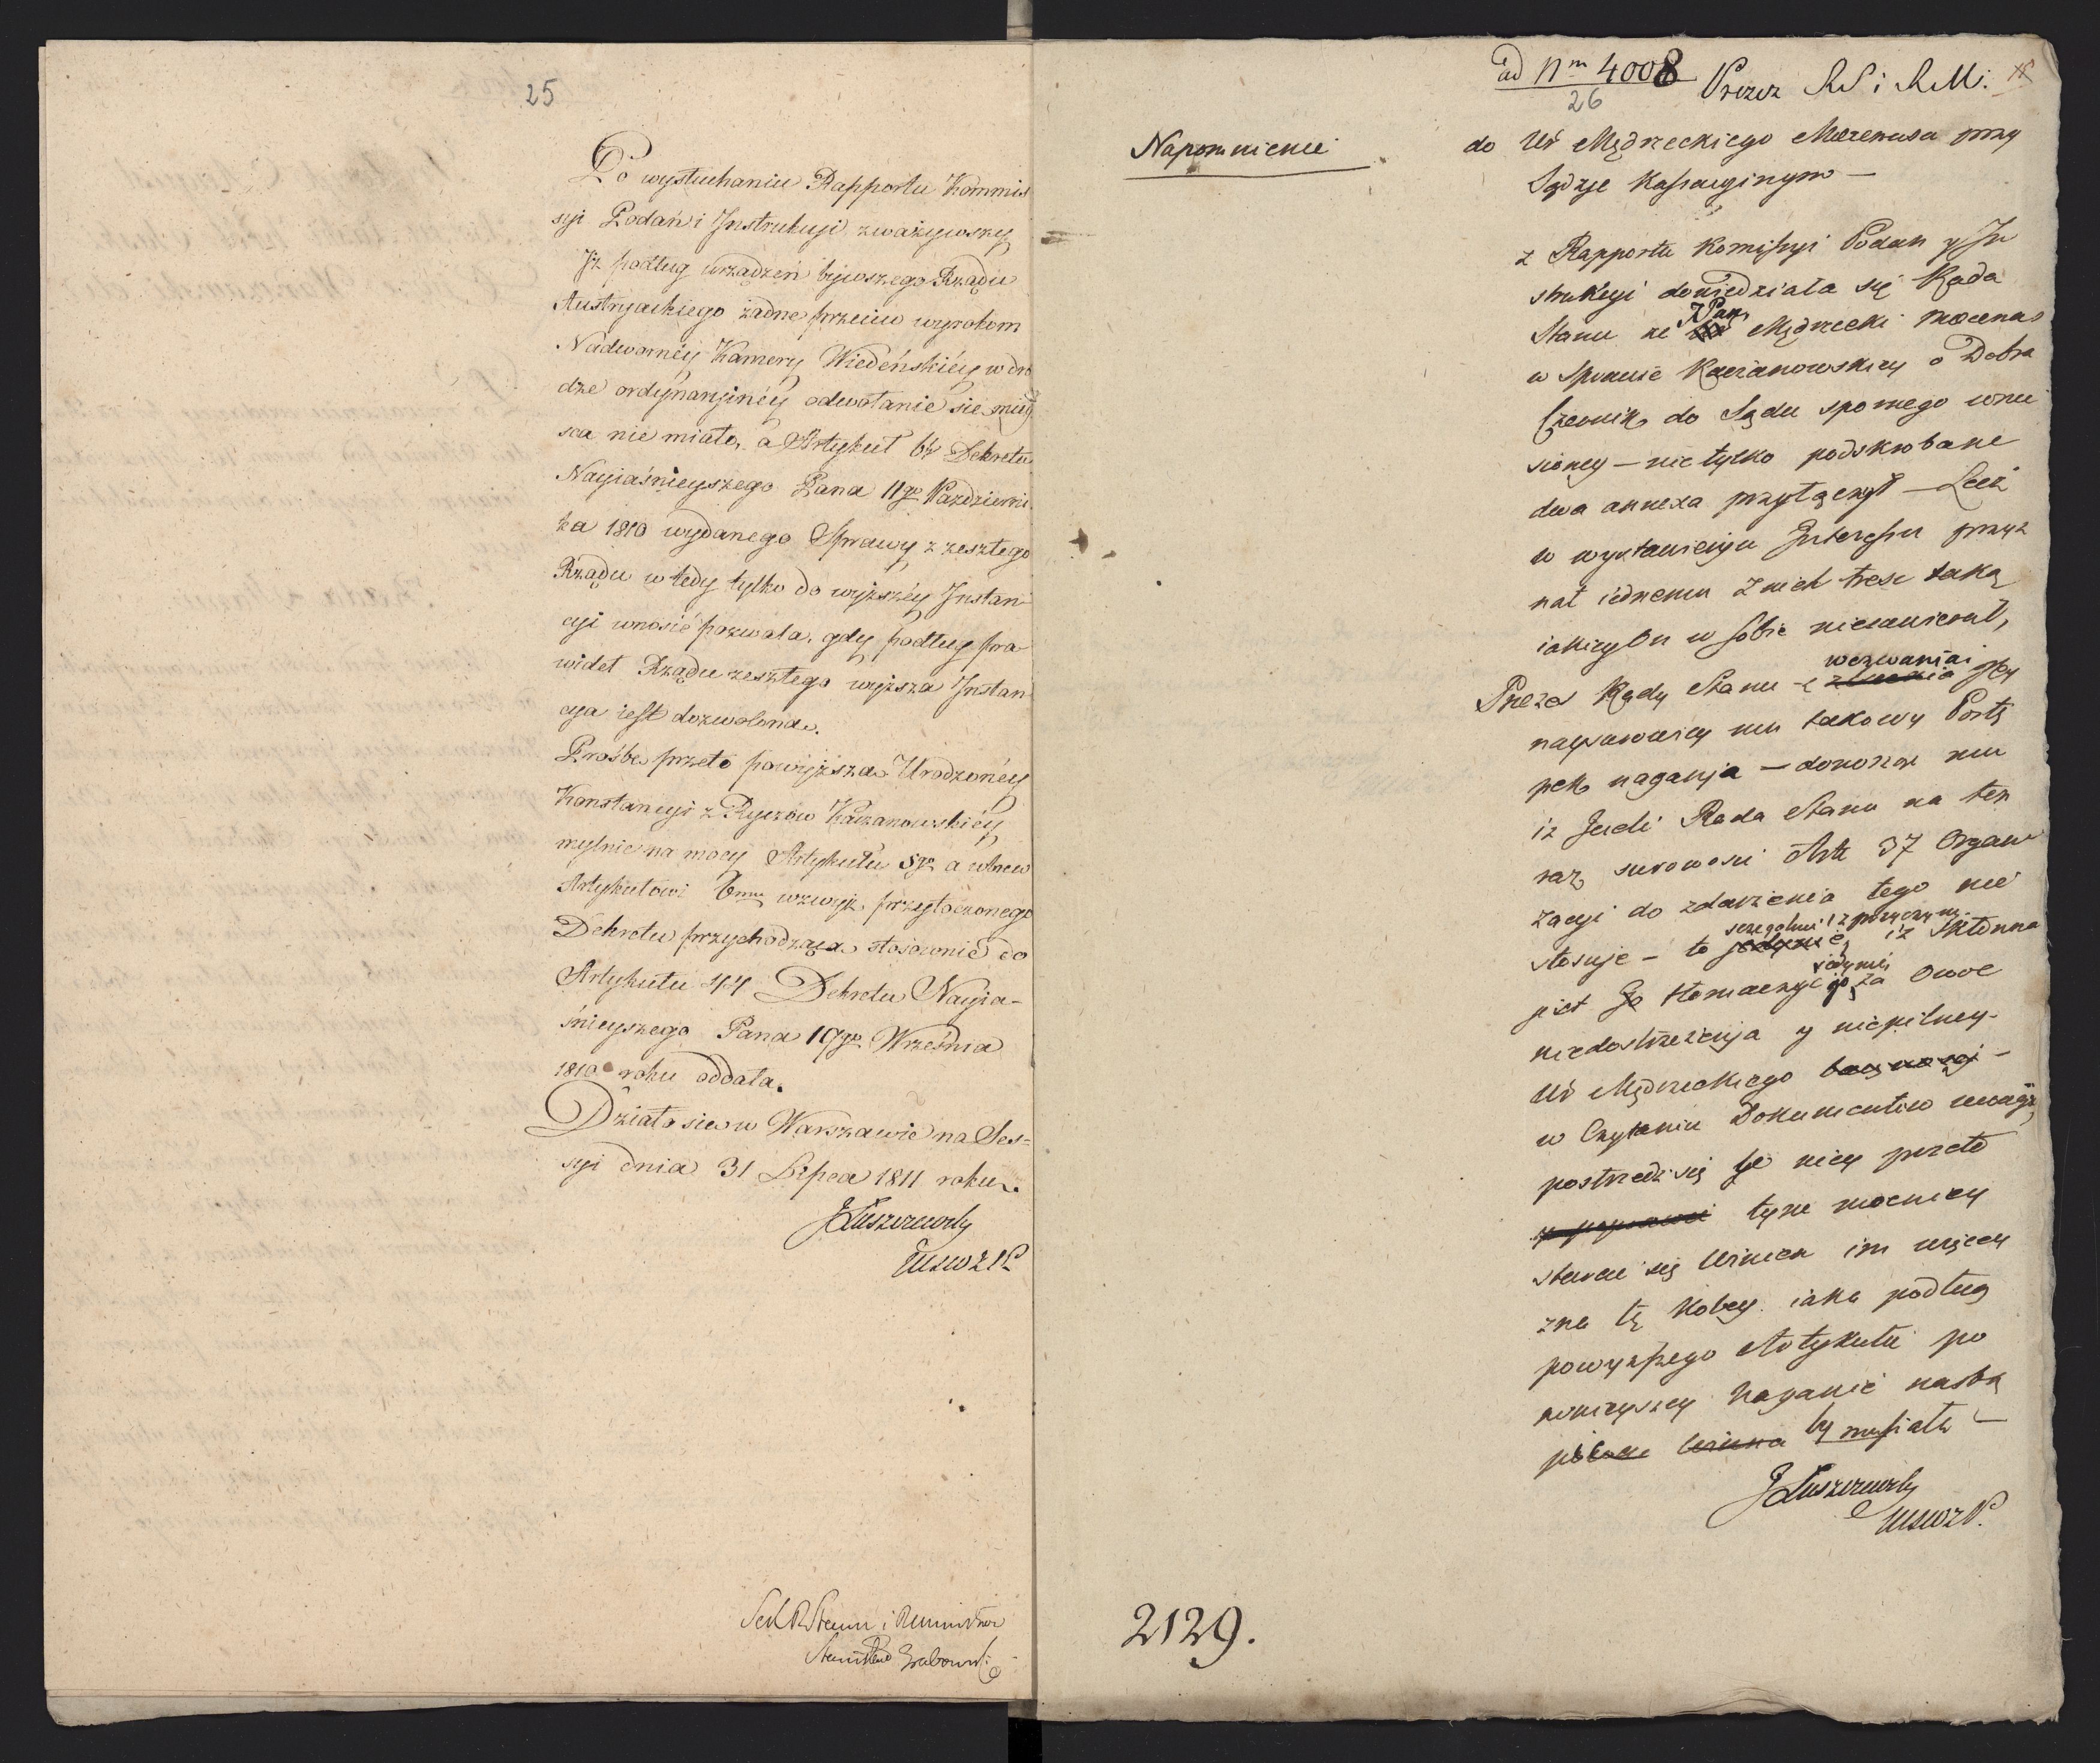 25
Po wysłuchaniu Rapportu Kommis
syi Podań i Instrukcyi zważywszy
Iż podług urządzeń bywszego Rządu
Austryackiego żadne przeciw wyrokom
Nadwornéy Kamery Wiedeńskiéy w dro
dze ordynaryinéy odwołanie się miey
sca nie miało, a Artykuł 6ty Dekretu
Nayiaśnieyszego Pana 11go Październi
ka 1810 wydanego Sprawy z zeszłego
Rządu wtedy tylko do wyższéy Instan
cyi wnosić pozwala, gdy podług pra
wideł Rządu zeszłego wyższa Instan
cya iest dozwolona.
Prośbę przeto powyższą Urodzonéy
Konstancyi z Ryczow Kaczanowskiéy
mylnie na mocy Artykułu 5go a wbrew
Artykułowi 6mu wzwyż przytoczonego
Dekretu przychodzącą stosownie do
Artykułu 44 Dekretu Nayia-
śnieyszego Pana 19go Września
1810 roku oddala.
Działo się w Warszawie na Ses=
syi dnia 31 Lipca 1811 roku.
JŁuszczewsky
Sekr RStanu i RMinistrow
Stanisław Grabowski
ad Nm 4008
26
Prezes RS i RM:
Napomnienie
do Ur Mędrzeckiego Mecenasa przy
Sądzie Kassacyinym —
z Rapportu Komissyi Podań y In
strukcyi dowiedziała się Rada
Stanu że JPan Mędrzecki Mecenas
w Sprawie Kaczanowskiey o Dobra
do Sądu spornego wnie
sioney — nie tylko podskrobane
dwa annexa przyłączył — Lecz
w wystawieniu Interessu przyz
nał iednemu z nich treść taką
iakiey On w sobie niezawierał,
Prezes Rady Stanu z wezwania iey
nayżarowiey mu takowy Postę
pek nagania — donosząc mu
iż Jeźeli Rada Stanu na ten
raz surowości Artu 37 Organi
zacyi do zdarzenia tego nie
stosuje — to szczególniéy z przyczyny iż skłonna
jest tłomaczyć go iedynie za owoc
niedostrzeżenia y niepilney
Ur Mędrzeckiego
w Czytaniu Dokumentów uwagi,
postrzedz się jéj niey przeto
tym mocniey
starać się winien im więcey
zna tę Kolcy iaka podług
powyższego Artykułu po
nowieyszey Naganie nastą
pić by musiała —
JŁuszczewsky
2129.